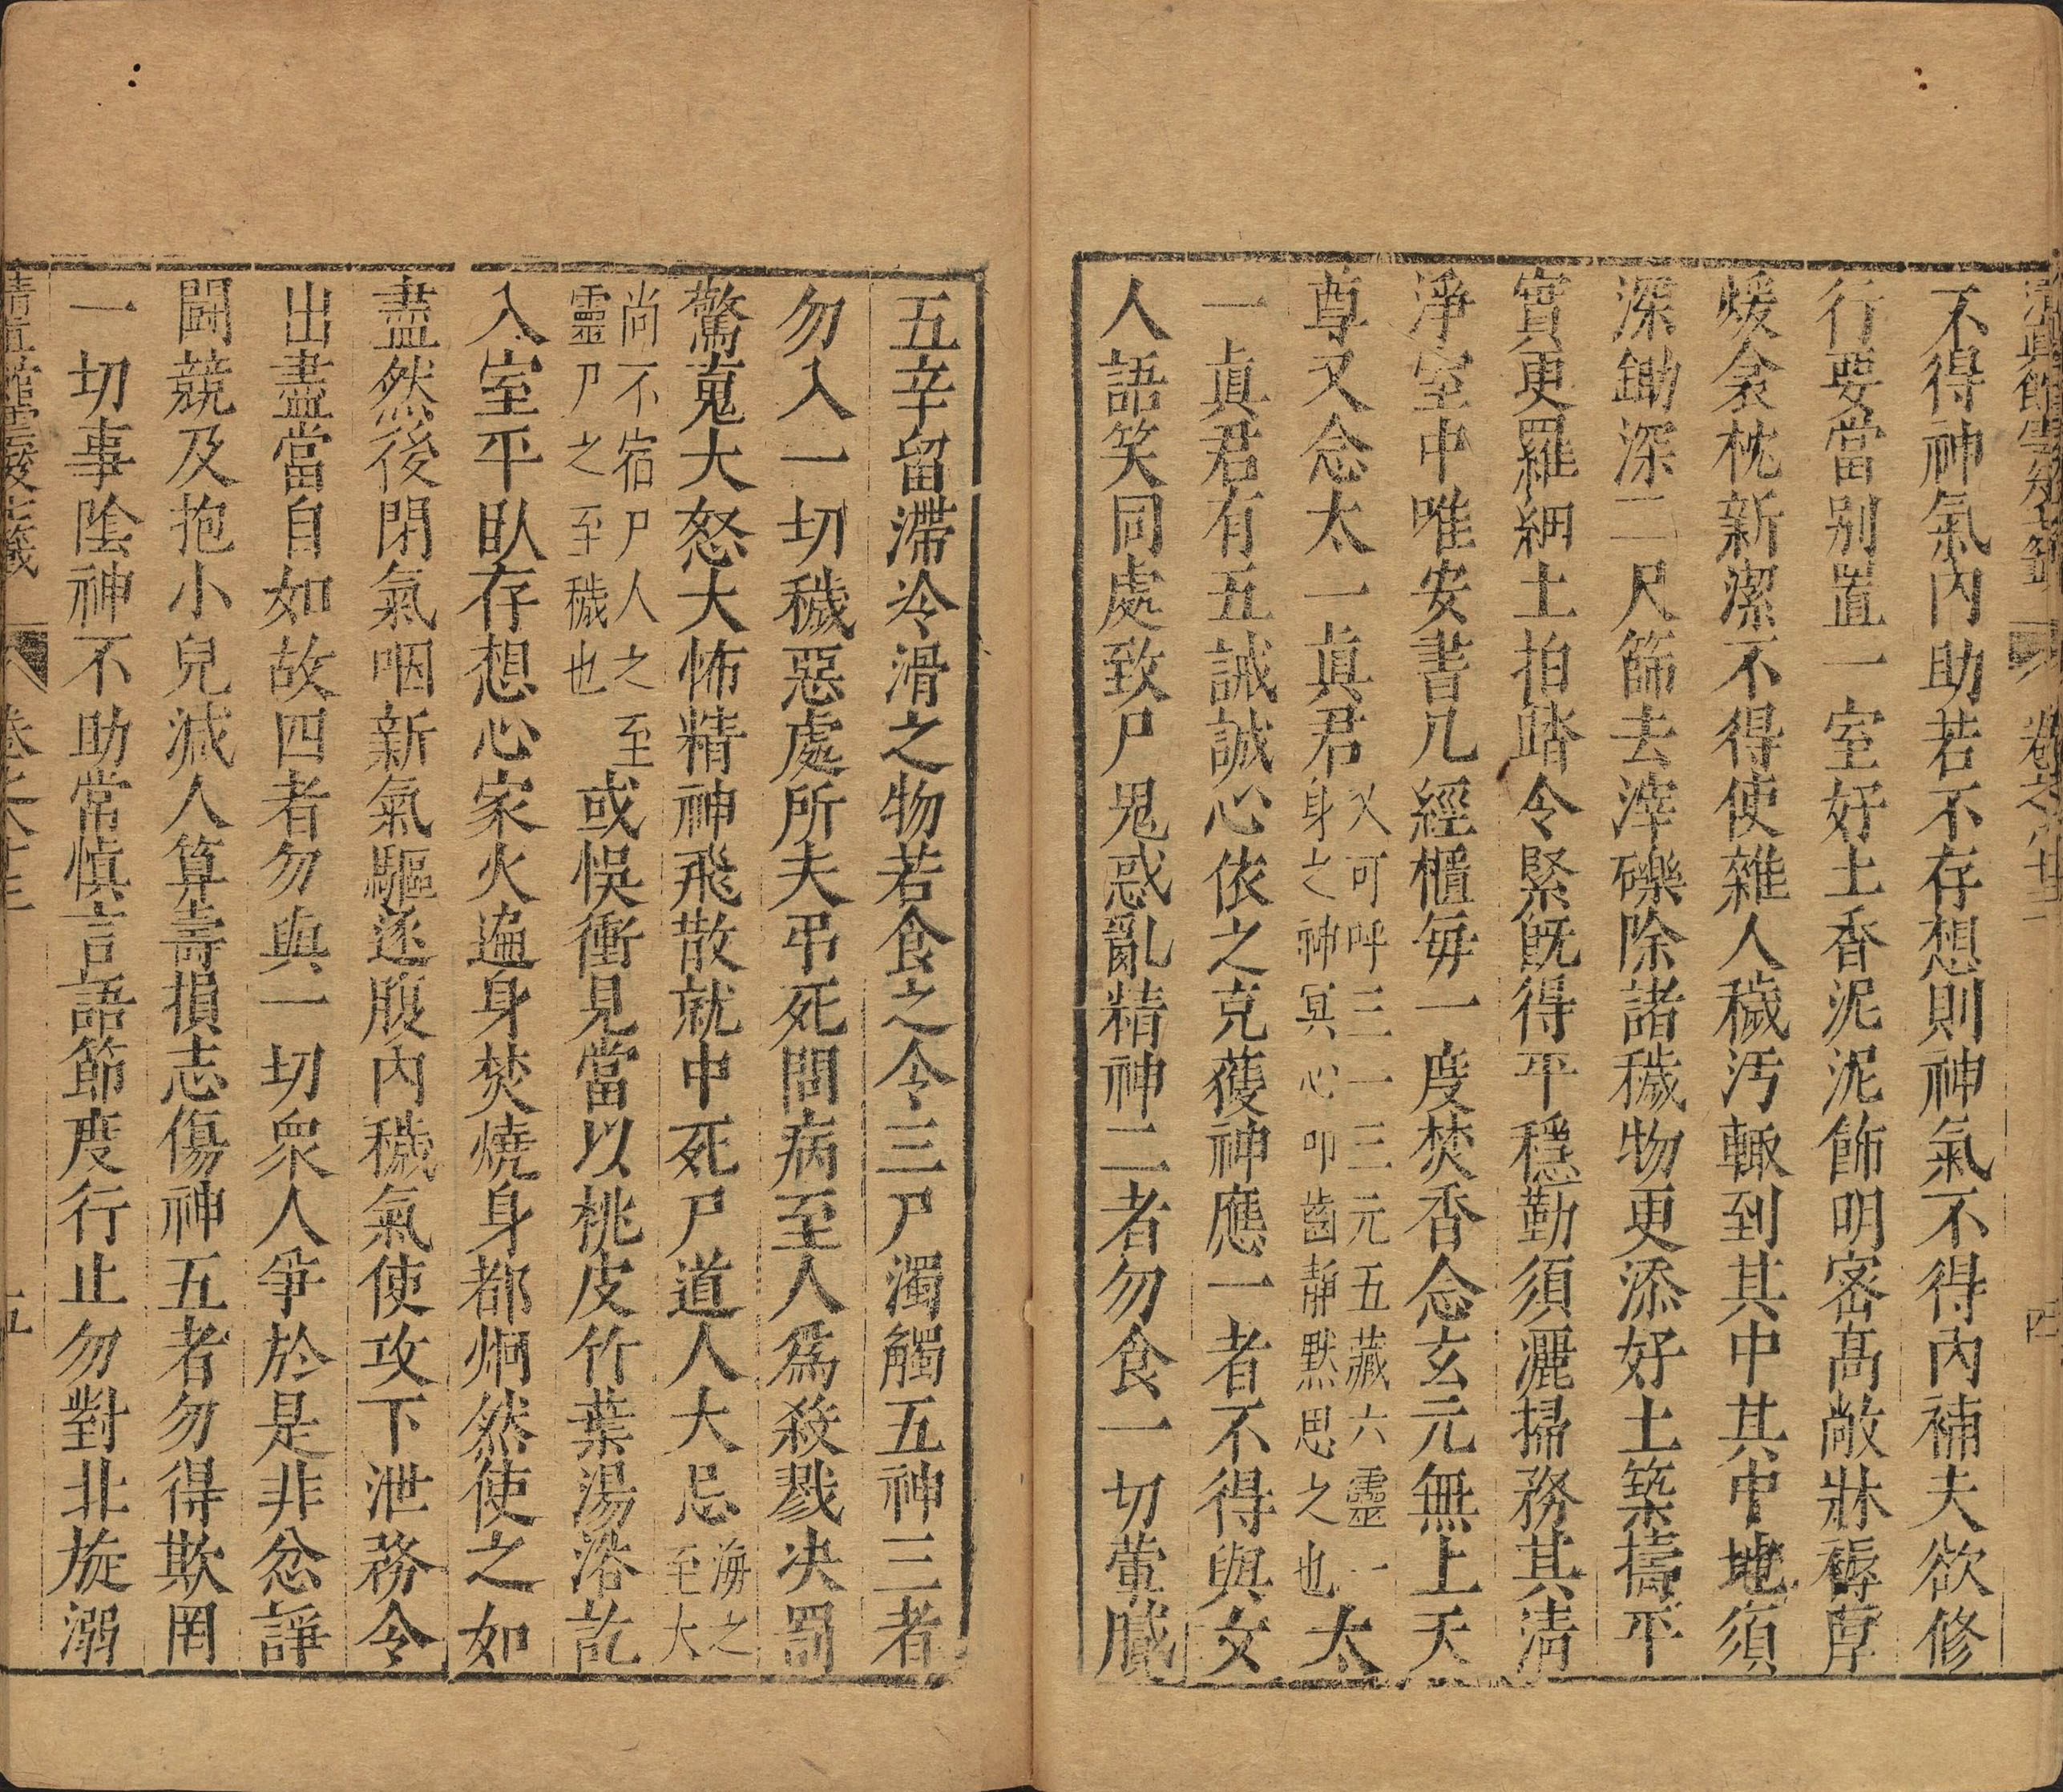 不得神氣內助若不存想則神氣不得內補夫欲修
行要當别置一室好土香泥泥飾明密高敞牀褥厚
煖衾枕新潔不得使雜人穢汚輙到其中其中地須
深鋤深二尺篩去滓礫除諸穢物更添好土築擣平
實更羅細土拍踏令緊旣得平穩勤須灑掃務其清
淨室中唯安書几經櫃每一度焚香念玄元無上天
尊又念太一眞君又可呼三一三元五藏六靈一身之神冥心叩齒靜默思之也太
一眞君有五誡誠心依之克獲神應一者不得與女
人語笑同處致尸鬼惑亂精神二者勿食一切葷膩
五辛留滯冷滑之物若食之令三尸濁觸五神三者
勿入一切穢惡處所夫弔死問病至人爲殺戮决罰
驚䰟大怒大怖精神飛散就中死尸道人大忌海之至大
尚不宿尸人之至靈尸之至穢也或悞衝見當以桃皮竹葉湯浴訖
入室平臥存想心家火遍身焚燒身都炯然使之如
盡然後閉氣咽新氣驅逐腹內穢氣使攻下泄務令
出盡當自如故四者勿與一切衆人爭於是非忿諍
鬭競及抱小兒減人算壽損志傷神五者勿得欺罔
一切事陰神不助常愼言語節度行止勿對北旋溺